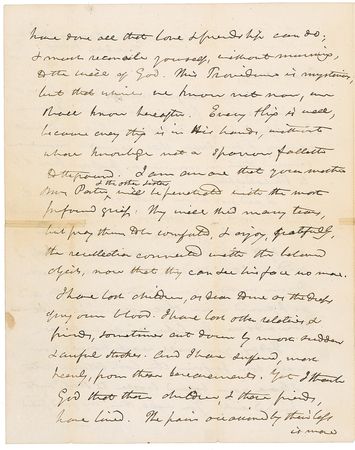 have done all that love & friendship can do;
& must reconcile yourself, without murmuring,
to the will of God. This Providence is mysterious,
but that which we know not now, we
shall know hereafter. Every thing is well,
because every thing is in his hands, without
whose knowledge not a sparrow falleth
to the ground. I am aware that your mother
& the other sister
Mrs Porter, will be penetrated with the most
profound grief. They will shed many tears,
but pray them to be comforted, & enjoy, gratefully,
the recollection connected with the beloved
object, now that they can see his face no more.
I have lost children, as dear to me as the drops
of my own blood. I have lost other relatives &
friends, sometimes cut down by most sudden
& awful strokes. And I have suffered, most
keenly, from these bereavements. Yet I thank
God that those children, & those friends,
have lived. The pain occasioned by their loss
is more